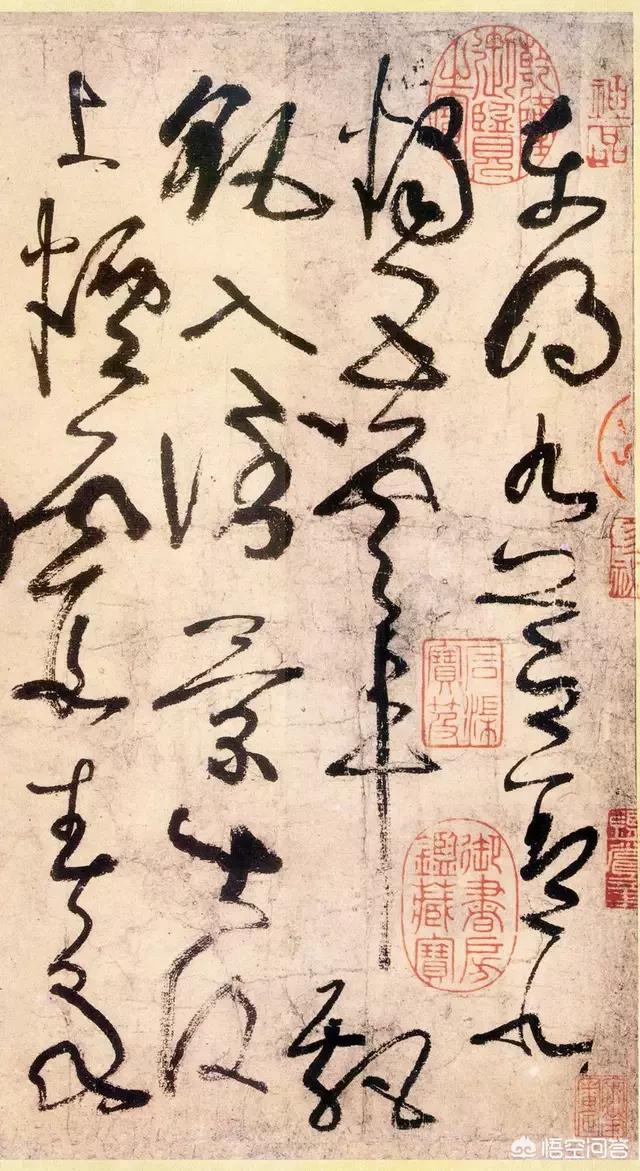 東明九芝蓋北
燭五雲車飄
飖入倒景出沒
上煙霞春泉
乾隆御覽之寶
神品
石渠寶笈
御書房鑑藏寶
悟空问答